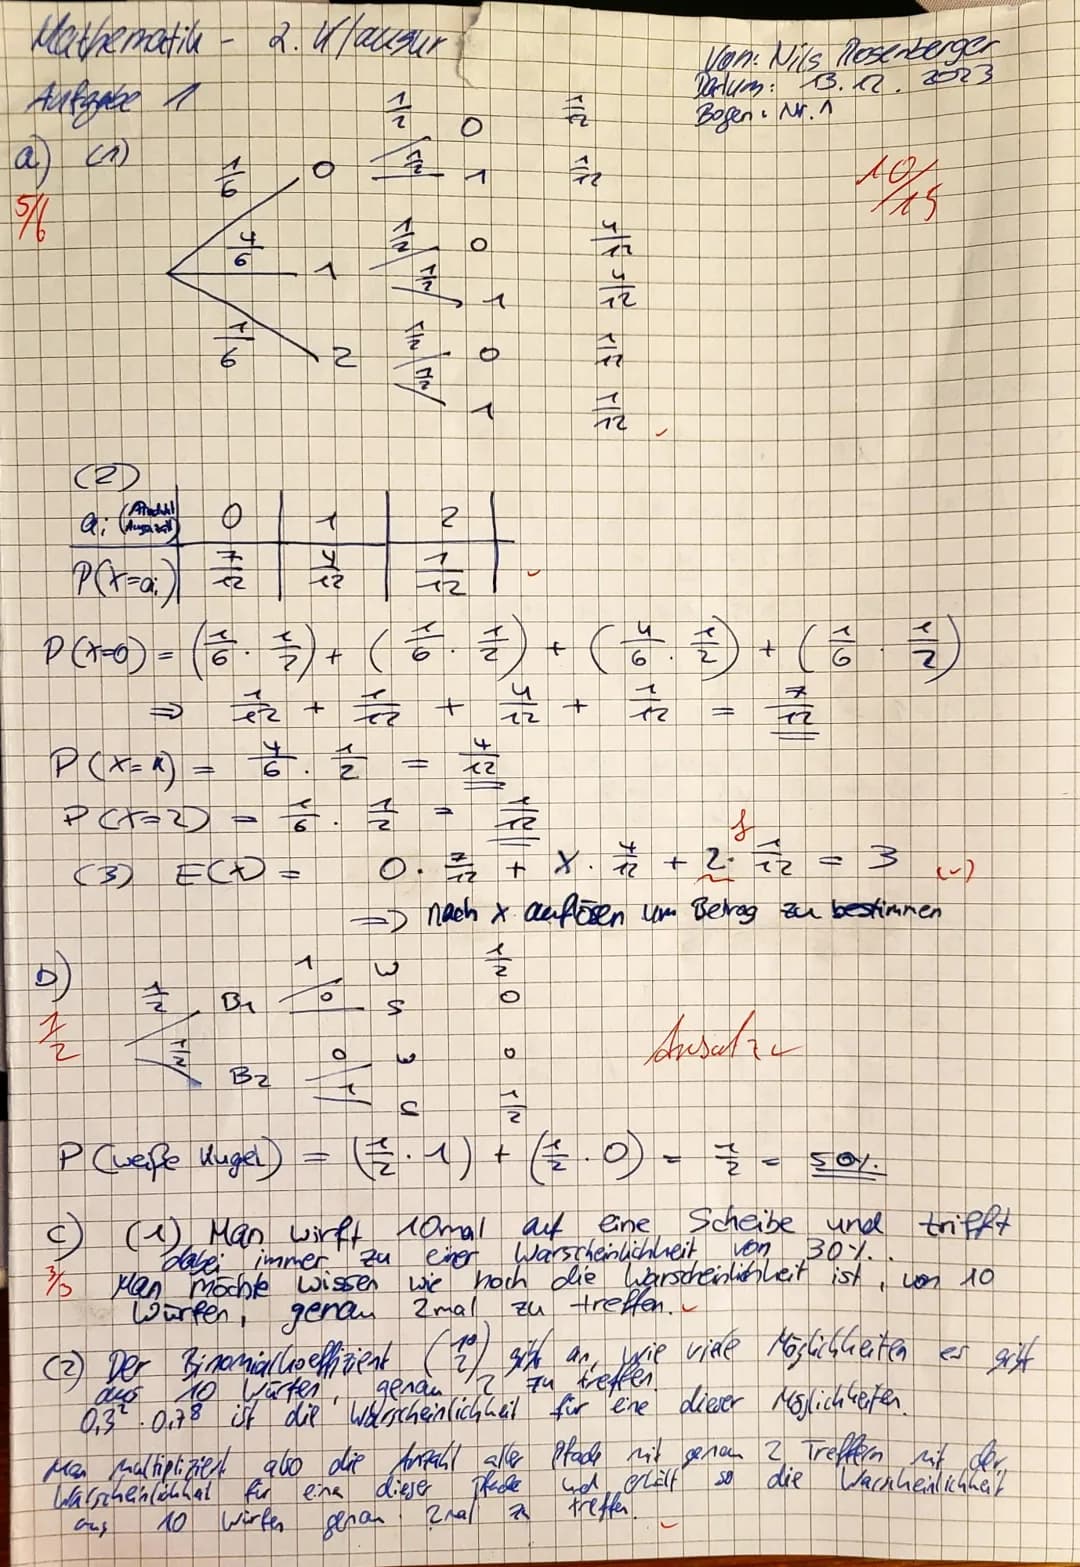 Mathematik - 2. Klausur
Von: Nils Rosenberger
Datum: 13.12.2023
Bogen: Nr. 1
Aufgabe 1
10/15
a) (1)
5/6
1/2 0 1/12
1/6 0 1/2 1 1/12
4/6 1 1/2 0 4/12
1/2 1 4/12
1/6 2 1/2 0 1/12
1/2 1 1/12
(2)
ai (Anzahl Augenzahl) 0 1 2
P(X=ai) 7/12 4/12 1/12
P(X=0) = (1/6 · 1/2) + (1/6 · 1/2) + (4/6 · 1/2) + (1/6 · 1/2)
⇒ 1/12 + 1/12 + 4/12 + 1/12 = 7/12
P(X=1) = 4/6 · 1/2 = 4/12
P(X=2) = 1/6 · 1/2 = 1/12
f
(3) E(X) = 0 · 7/12 + X · 4/12 + 2 · 1/12 = 3 (✓)
=> nach x auflösen um Betrag zu bestimmen
b)
1/2
1/2 B1 1 W 1/2
0 S 0
1/2 B2 0 W 0
1 S 1/2
Ansatz ✓
P(weiße Kugel) = (1/2 · 1) + (1/2 · 0) = 1/2 = 50%
c) (1) Man wirft 10mal auf eine Scheibe und trifft
dabei immer zu einer Warscheinlichkeit von 30%.
3/3
Man möchte wissen wie hoch die Warscheinlichkeit ist, von 10
Würfen, genau 2mal zu treffen. ✓
(2) Der Binomialkoeffizient (10 2) gibt an, wie viele Möglichkeiten es gibt
aus 10 Würfen, genau 2 zu treffen.
0,3² · 0,7⁸ ist die Warscheinlichkeit für eine dieser Möglichkeiten.
Man multipliziert also die Anzahl aller Pfade mit genau 2 Treffern mit der
Warscheinlichkeit für eine dieser Pfade und erhält so die Warscheinlichkeit
aus 10 Würfen genau 2mal zu treffen. ✓